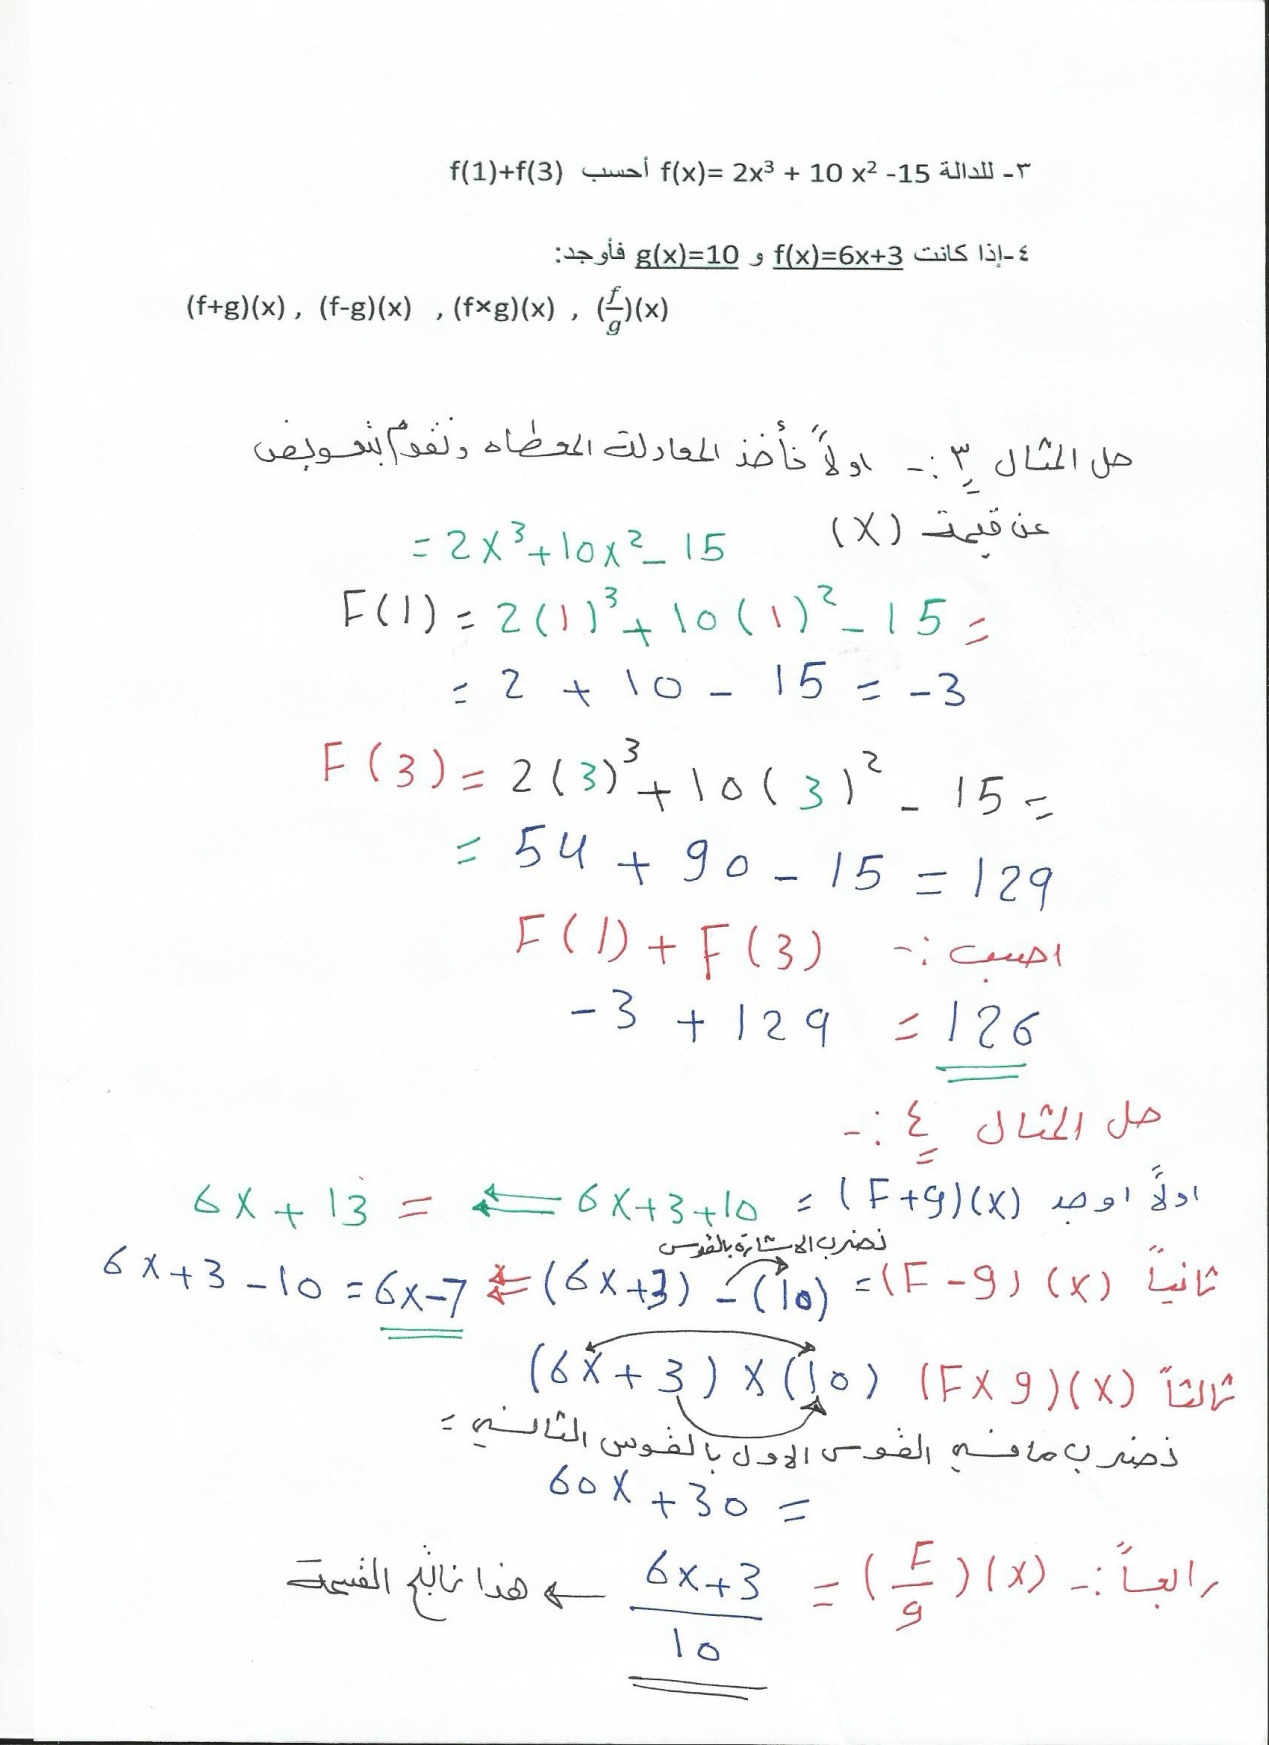 ٣- للدالة f(x)= 2x³ + 10 x² -15 أحسب f(1)+f(3)
٤-إذا كانت f(x)=6x+3 و g(x)=10 فأوجد:
(f+g)(x) , (f-g)(x) , (f×g)(x) , (f/g)(x)
حل المثال ٣ :- اولاً نأخذ المعادلة المعطاه ونقوم بتعويض
عن قيمة (X)
= 2X³+10X²- 15
F(1) = 2(1)³+ 10(1)² - 15 =
= 2 + 10 - 15 = -3
F(3) = 2(3)³+ 10(3)² - 15 =
= 54 + 90 - 15 = 129
احسب :- F(1) + F(3)
-3 + 129 = 126
حل المثال ٤ :-
اولاً اوجد (F+g)(x) = 6X+3+10 ⇐ = 6X + 13
نضرب الاشارة بالقوس
ثانياً (F - g) (x) = (6X+3) - (10) ⇐ 6X+3 - 10 = 6X-7
ثالثاً (F X g)(x) (6X + 3) X (10)
نضرب ما في القوس الاول بالقوس الثاني =
= 60X + 30
رابعاً :- (F/g)(x) = 6X+3/10 ← هذا ناتج القسمة